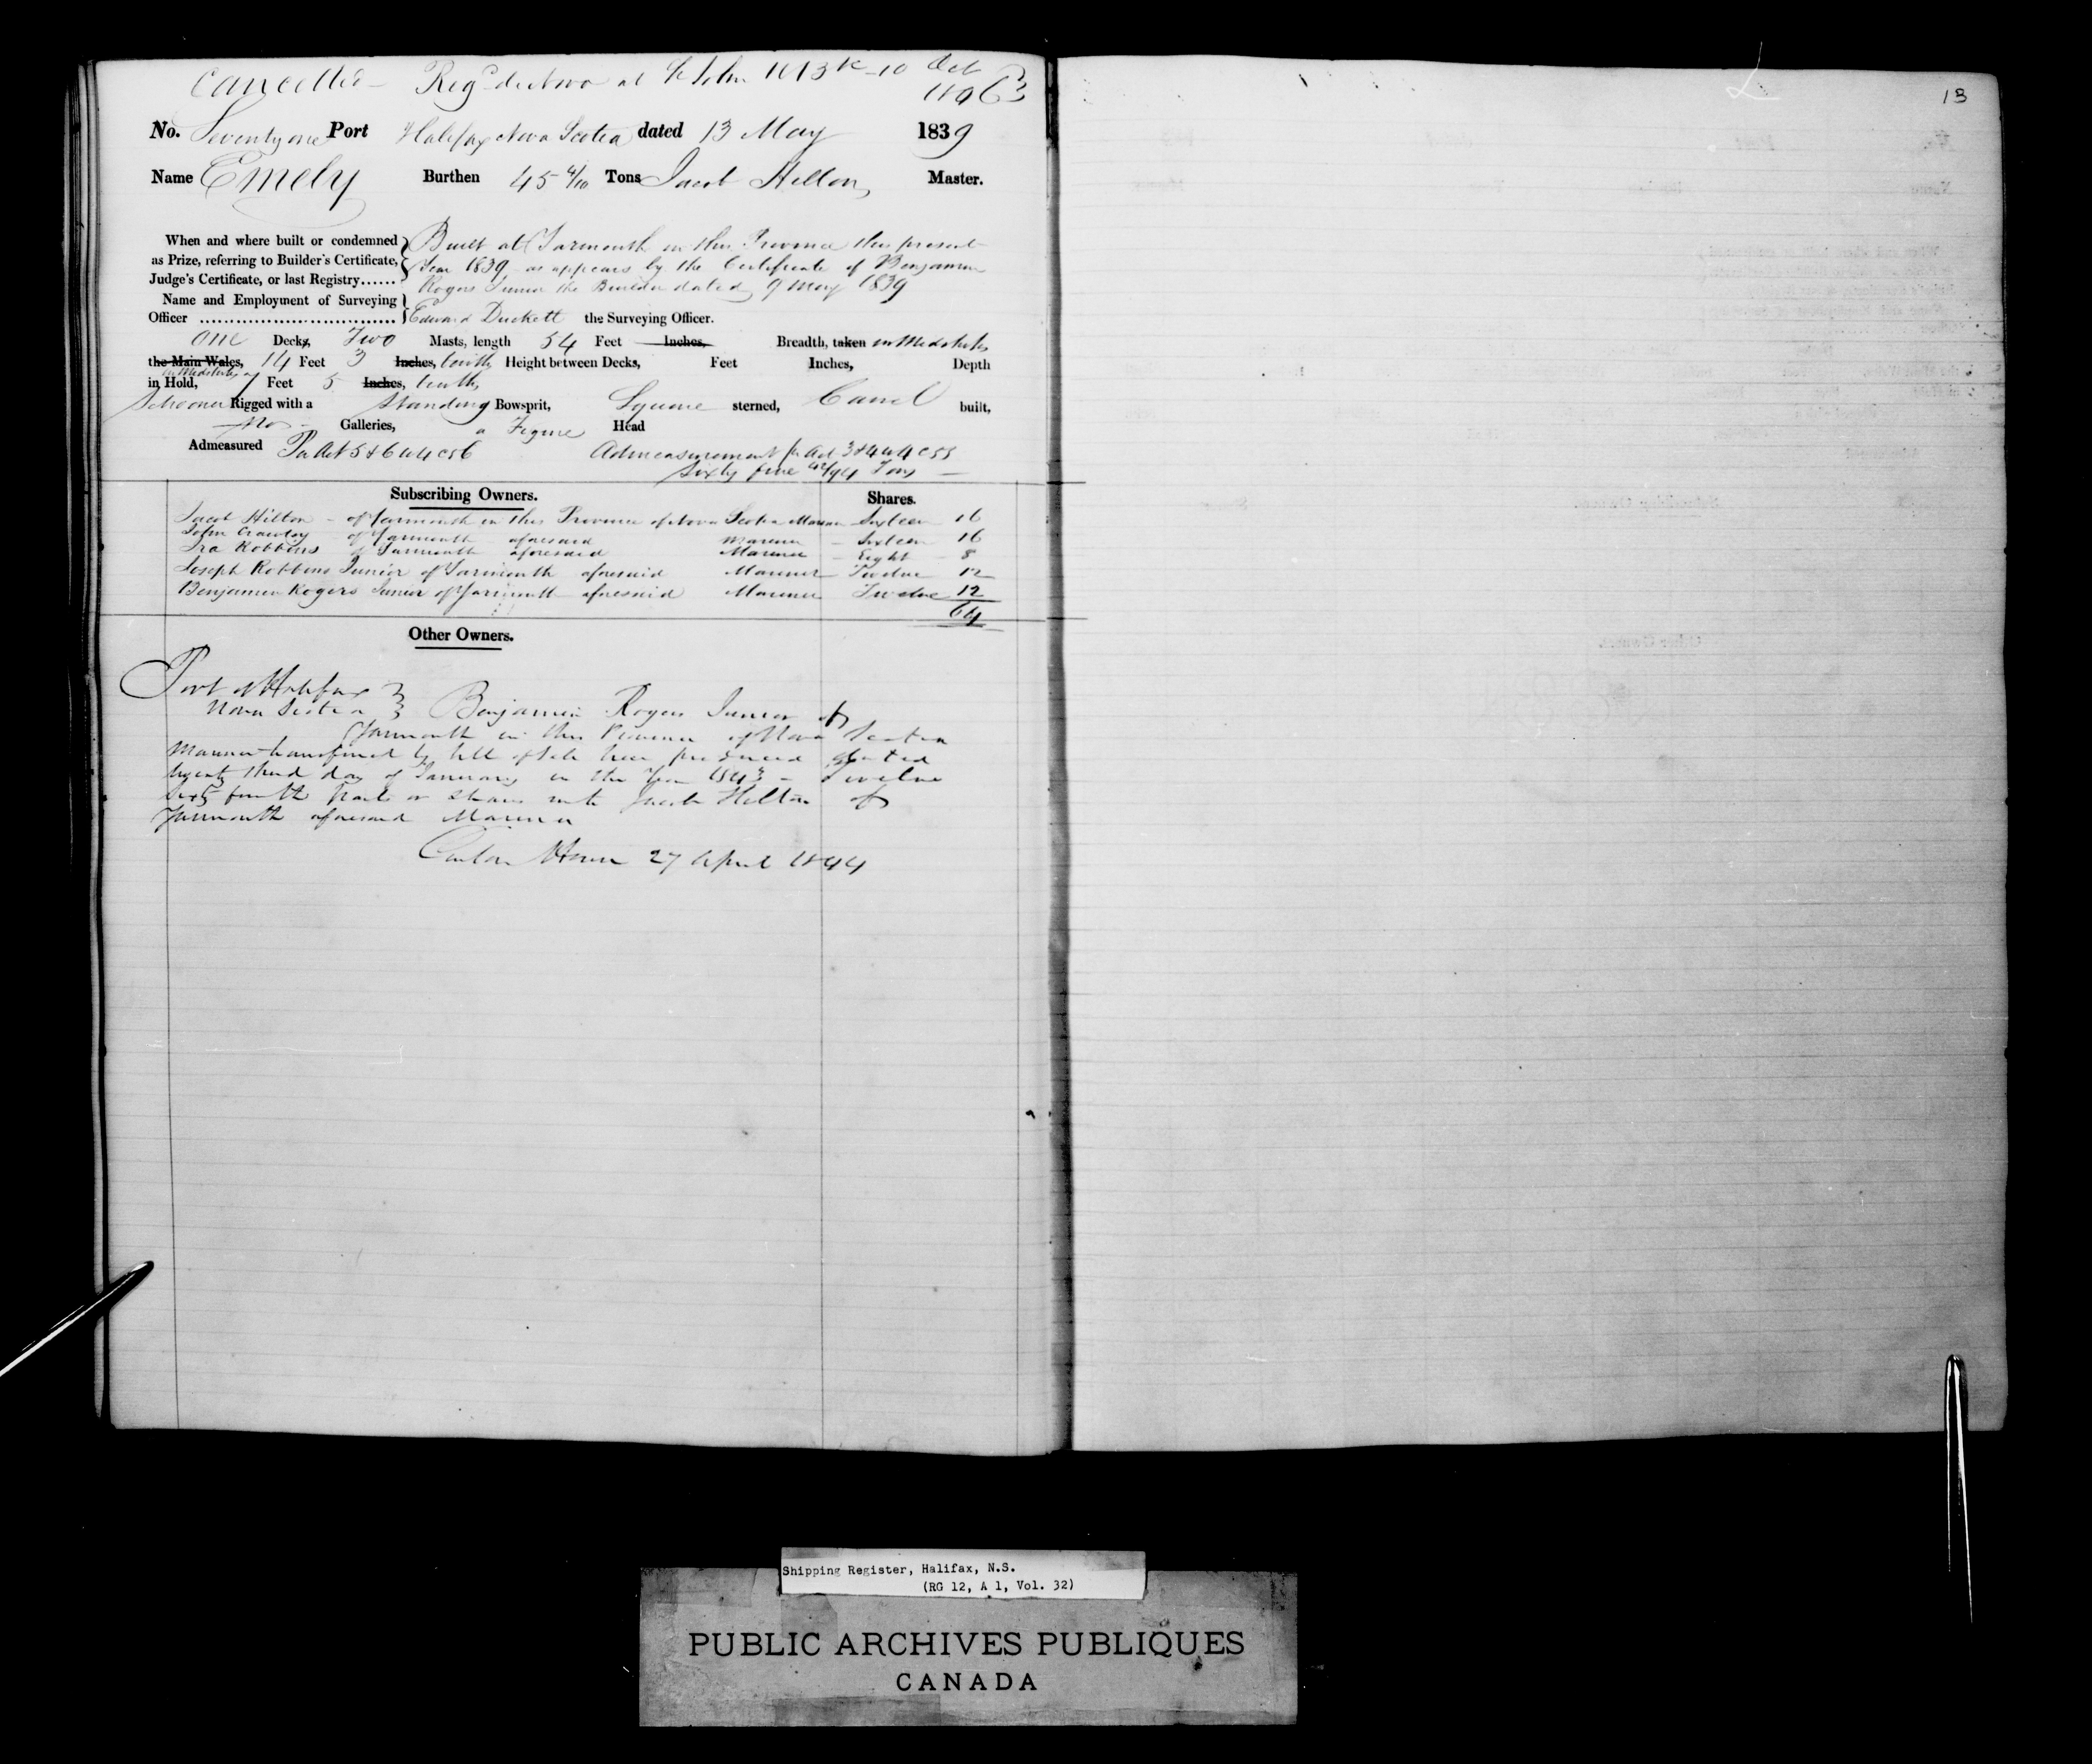 Cancelled Regd de novo at St John N B 10 Oct
63
13
No. Seventy one Port Halifax Nova Scotia dated 13 May 1839
Name Emely Burthen 45 4/10 Tons Jacob Hilton Master.
When and where built or condemned as Prize, referring to Builder's Certificate, Judge's Certificate, or last Registry......
Built at Yarmouth in this Province this present
Year 1839 as appears by the Certificate of Benjamin
Rogers Junior the Builder dated 9 May 1839
Name and Employment of Surveying Officer ................................ Edward Duckett the Surveying Officer.
One Decks, Two Masts, length 54 Feet Inches, Breadth, taken in Midships
the Main Wales, 14 Feet 3 Inches, tenths Height between Decks, Feet Inches, Depth
in Midships
in Hold, 7 Feet 5 Inches, tenths
Schooner Rigged with a Standing Bowsprit, Square sterned, Carvel built,
No Galleries, a Figure Head
Admeasured Pr Act 5 & 6 W 4 C 56 Admeasurement pr Act 3 & 4 W 4 C 55
Sixty five 42/94 Tons
Subscribing Owners. Shares.
Jacob Hilton of Yarmouth in this Province of Nova Scotia Mariner Sixteen 16
John Crawley of Yarmouth aforesaid Mariner Sixteen 16
Ira Robbins of Yarmouth aforesaid Mariner Eight 8
Joseph Robbins Junior of Yarmouth aforesaid Mariner Twelve 12
Benjamin Rogers Junior of Yarmouth aforesaid Mariner Twelve 12
64
Other Owners.
Port of Halifax
Nova Scotia Benjamin Rogers Junior of
Yarmouth in this Province of Nova Scotia
Mariner transferred by bill of Sale here produced dated
twenty third day of January in the Year 1843 Twelve
sixty fourth parts or shares unto Jacob Hilton of
Yarmouth aforesaid Mariner
Custom House 27 April 1844
Shipping Register, Halifax, N.S.
(RG 12, A 1, Vol. 32)
PUBLIC ARCHIVES PUBLIQUES
CANADA